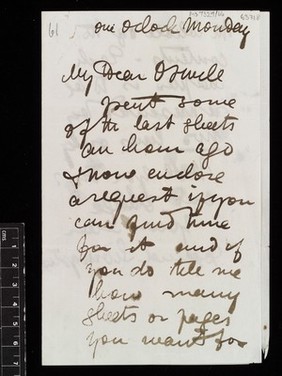 61
one o'clock Monday
My Dear
I sent some
of the last sheets
an hour ago
& now enclose
a request if you
can find time
for it and if
you do tell me
how many
sheets or pages
you want for